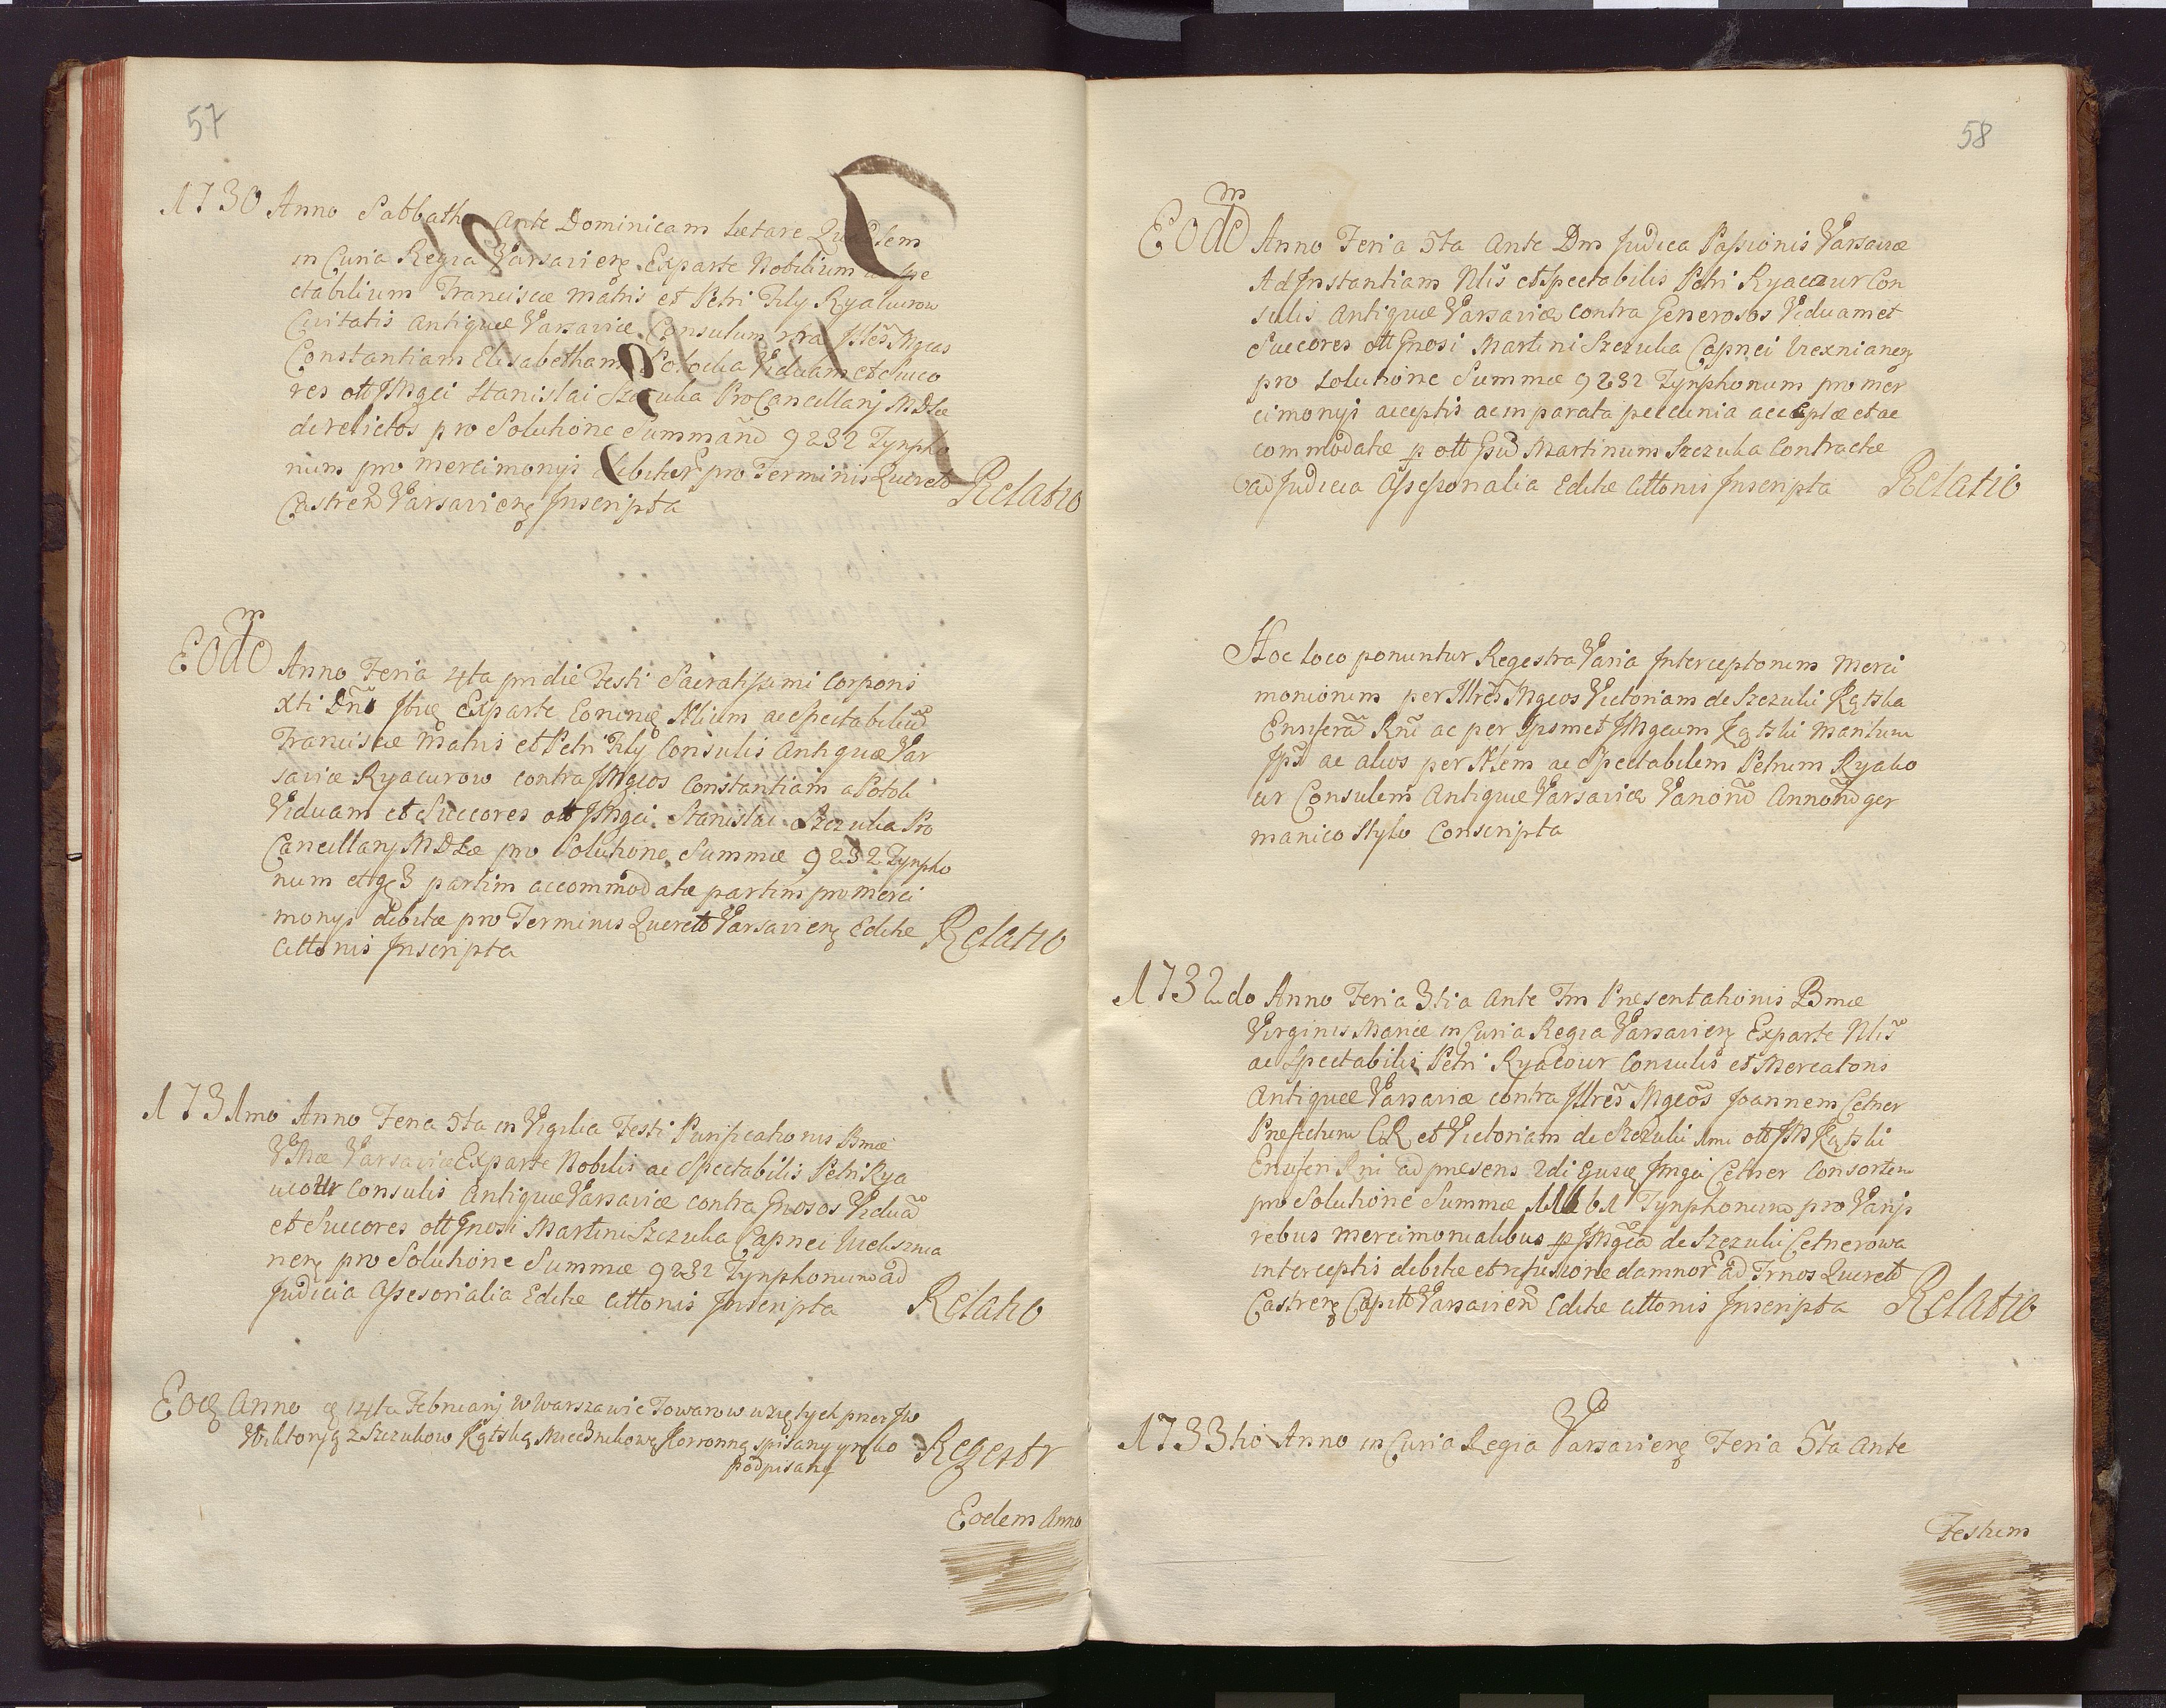 57
1730 Anno Sabbatho Ante Dominicam Lætare
in Curia Regia Varsavieñ Exparte Nobilium ac Spe
ctabilium Franciscæ Matris et Petri Filij Ryaucurow
Civitatis Antiquæ Varsaviæ Consulum ntra Jllẽs Mgcas
Constantiam Elisabetham Potocka Viduam et Succo
res olt JMgci Stanislai Szczuka ProCancellarij MDLæ
derelictos pro Solutione Summarũ 9232 Tynpho
num pro mercimonijs debitæ pro Terminis Querelæ
Castreñ Varsavieñ Jnscripta Relatio
Eodem Anno Feria 4ta pridie Festi Sacratissimi Corporis
Xti Dñi Exparte ac Spectabiliũ
Franciscæ Matris et Petri Filij Consulis Antiquæ Var
saviæ Ryacurow contra JMgcos Constantiam a Potok
Viduam et Succores olt JMgci Stanislai Szczuka Pro
Cancellarij MDLæ pro Solutione Summæ 9232 Tynpho
num et g 3 partim accommodatæ partim pro merci
monijs debitæ pro Terminis Querelæ Varsavieñ Editæ
Cittonis Jnscripta Relatio
1731mo Anno Feria 5ta in Vigilia Festi Purificationis Bmæ
VMæ Varsaviæ Exparte Nobilis ac Spectabilis Petri Rya
ucour Consulis Antiquæ Varsaviæ contra Gnosos Viduã
et Succores olt Gnosi Martini Szczuka Capnei
neñ pro Solutione Summæ 9232 Tynphonum ad
Judicia Assesorialia Editæ Cittonis Jnscripta Relatio
Eodem Anno 14ta Februarij w Warszawie Towarow wziętych przez Jw
Wiktoryą z Szczukow Kątską Miecznikowę Koronną spisany y ręko Regestr
podpisany
Eodem Anno
58
Eodem Anno Feria 5ta Ante Dm Judica Passionis Varsaviæ
Ad Jnstantiam Nlis et Spectabilis Petri Ryacour Con
sulis Antiquæ Varsaviæ contra Generosos Viduam et
Succores olt Gnosi Martini Szczuka Capnei
pro solutione Summæ 9232 Tynphonum pro mer
cimonijs acceptis ac in parata peccunia acceptæ et ac
commodatæ p olt Martinum Szczuka Contractæ
ad Judicia Assessorialia Editæ Cittonis Jnscripta Relatio
Hoc loco ponuntur Regestra Varia Jnterceptorum Merci
moniorum per Jllres Mgcos Victoriam de Szczuki Kątska
Ensiferã Rñi ac per Ipsmet JMgcum Kątski Maritum
Jps ac alios per Nlem ac Spectabilem Petrum Ryako
ur Consulem Antiquæ Varsaviæ Variorũ Annorũ ger
manico Stylo Conscripta
1732do Anno Feria 3tia Ante Fm Præsentationis Bmæ
Virginis Mariæ in Curia Regia Varsavieñ Exparte Nlis
ac Spectabilis Petri Ryacour Consulis et Mercatoris
Antiquæ Varsaviæ contra Jllrẽs Mgcõs Joannem Cetner
Præfectum CR et Victoriam de Szczuki 1mi olt JM Kątski
Ensiferi Rni ad præsens 2di JMgci Cetner Consortem
pro Solutione Summæ Tynphonum pro Varijs
rebus mercimonialibus p JMgcã de Szczuki Cetnerowa
interceptis debitæ et refusione damnor ad Trnos Querelæ
Castreñ Capitt Varsavieñ Editæ Cittonis Jnscripta Relatio
1733tio Anno in Curia Regia Varsavieñ Feria 5ta Ante
Festum